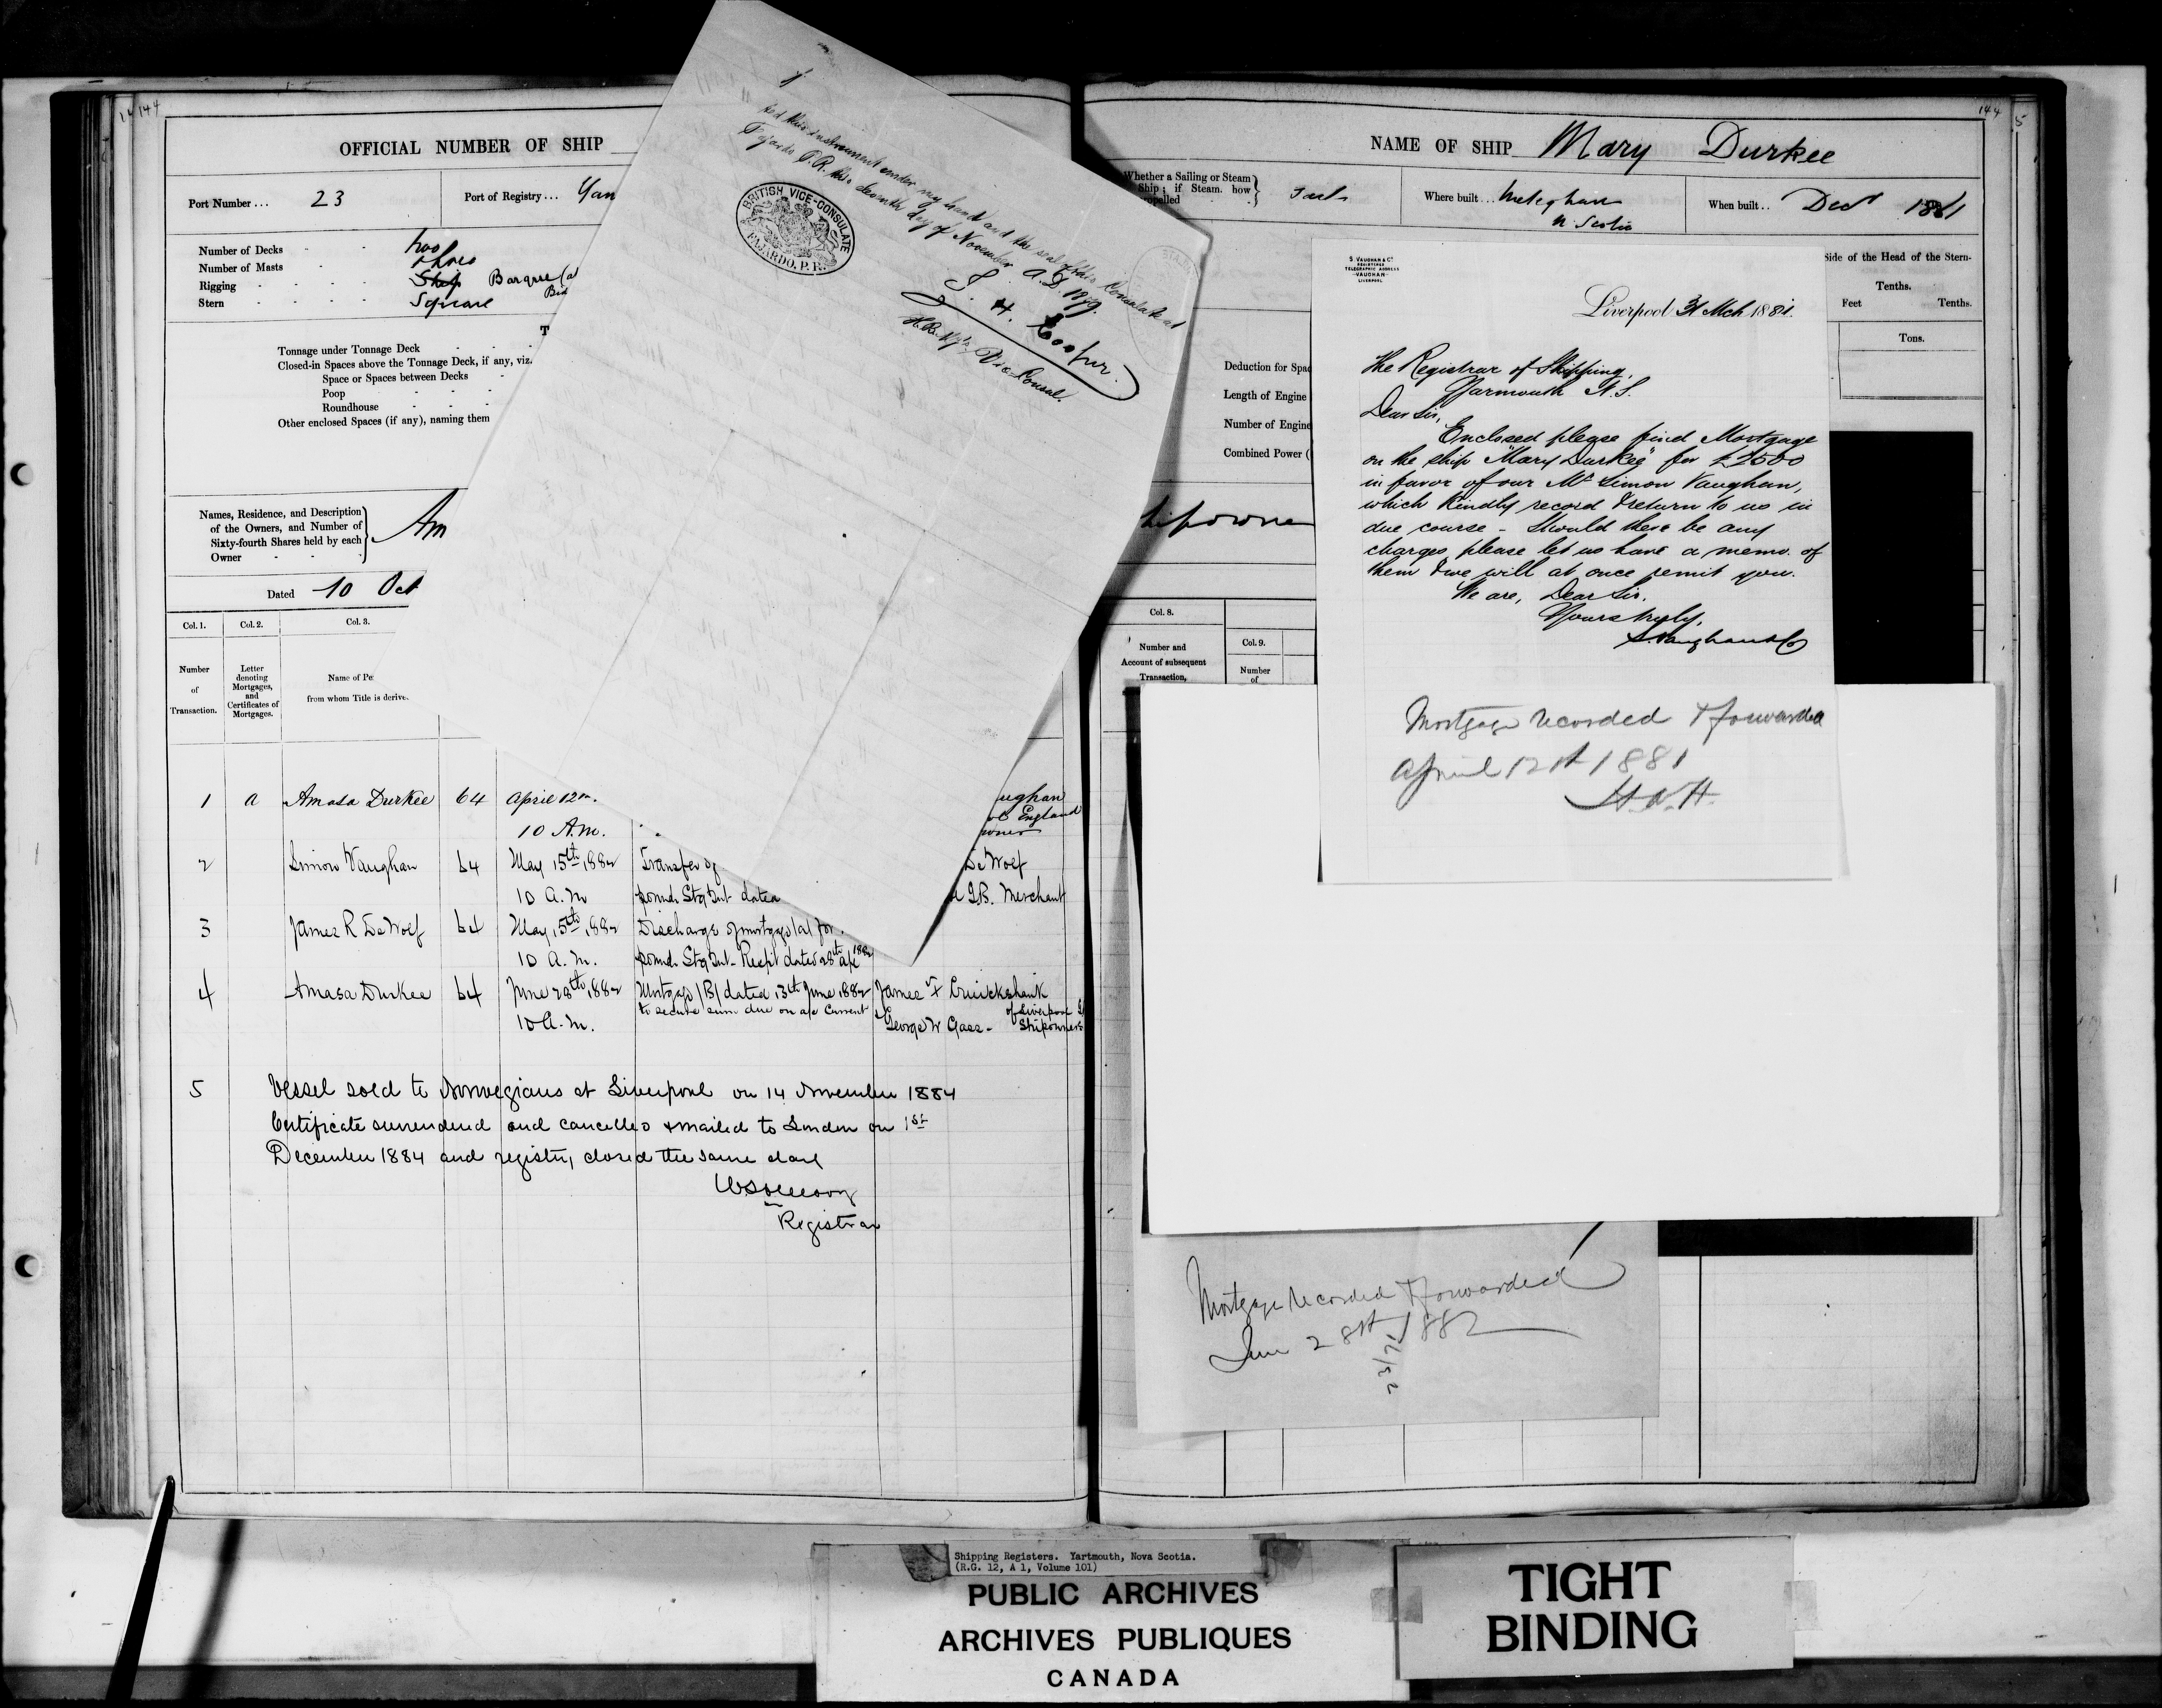 144
OFFICIAL NUMBER OF SHIP
Port Number... 23
Port of Registry... Yar
Number of Decks two
Number of Masts three
Rigging Ship Barque
Stern Square
Tonnage under Tonnage Deck
Closed-in Spaces above the Tonnage Deck, if any, viz.
Space or Spaces between Decks
Poop
Roundhouse
Other enclosed Spaces (if any), naming them
Names, Residence, and Description
of the Owners, and Number of
Sixty-fourth Shares held by each
Owner
Am
Dated 10 Oct
Col. 1. Col. 2. Col. 3.
Number of Transaction.
Letter denoting Mortgages, and Certificates of Mortgages.
Name of Pe
from whom Title is derive
1 a Amasa Durkee 64 April 12
10 A.M.
ughan
England
owner
2 Simon Vaughan 64 May 15th 1882 Transfer of
De Wolf
10 A.M pounds Stg Int dated
G.B. Merchant
3 James R De Wolf 64 May 15th 1882 Discharge of mortgage (a) for
10 A.M. pounds Stg Int- Receipt dated 28th
4 Amasa Durkee 64 June 28th 1882 Mortgage (B) dated 13th June 1882
to secure sum due on a/c Current
10 A.M.
James Cruickshank
of Liverpool
George W Gass - Shipowners
5 Vessel sold to Norwegians at Liverpool on 14 November 1884
Certificate surrendered and cancelled & mailed to London on 1st
December 1884 and registry closed the same day
Registrar
ted this instrument under my hand and the seal of this Consulate at
Fajardo P.R. this seventh day of November A.D.
BRITISH VICE-CONSULATE
FAJARDO, P.R.
Cooper
H.B.M's Vice Consul.
144
5
NAME OF SHIP Mary Durkee
Whether a Sailing or Steam
Ship; if Steam, how
propelled
Where built... Meteghan
N Scotia
When built.. Dec 1881
Side of the Head of the Stern-
Tenths.
Feet Tenths.
Tons.
Deduction for Spac
Length of Engine
Number of Engine
Combined Power (
hipowner
Col. 8.
Number and
Account of subsequent
Transaction,
Col. 9.
Number
of
S. VAUGHAN & Co
REGISTERED
TELEGRAPHIC ADDRESS
-VAUGHAN-
LIVERPOOL
Liverpool 31 Mch 1881.
The Registrar of Shipping,
Yarmouth N.S.
Dear Sir,
Enclosed please find Mortgage
on the ship "Mary Durkee" for £2500
in favor of our Mr Simon Vaughan,
which kindly record & return to us in
due course - Should there be any
charges please let us have a memo. of
them & we will at once remit you.
We are, Dear Sir,
Yours truly,
S. Vaughan & Co
Mortgage recorded & forwarded
April 12th 1881
Mortgage recorded & forwarded
June 28th 1882
Shipping Registers. Yartmouth, Nova Scotia.
(R.G. 12, A 1, Volume 101)
PUBLIC ARCHIVES
ARCHIVES PUBLIQUES
CANADA
TIGHT
BINDING